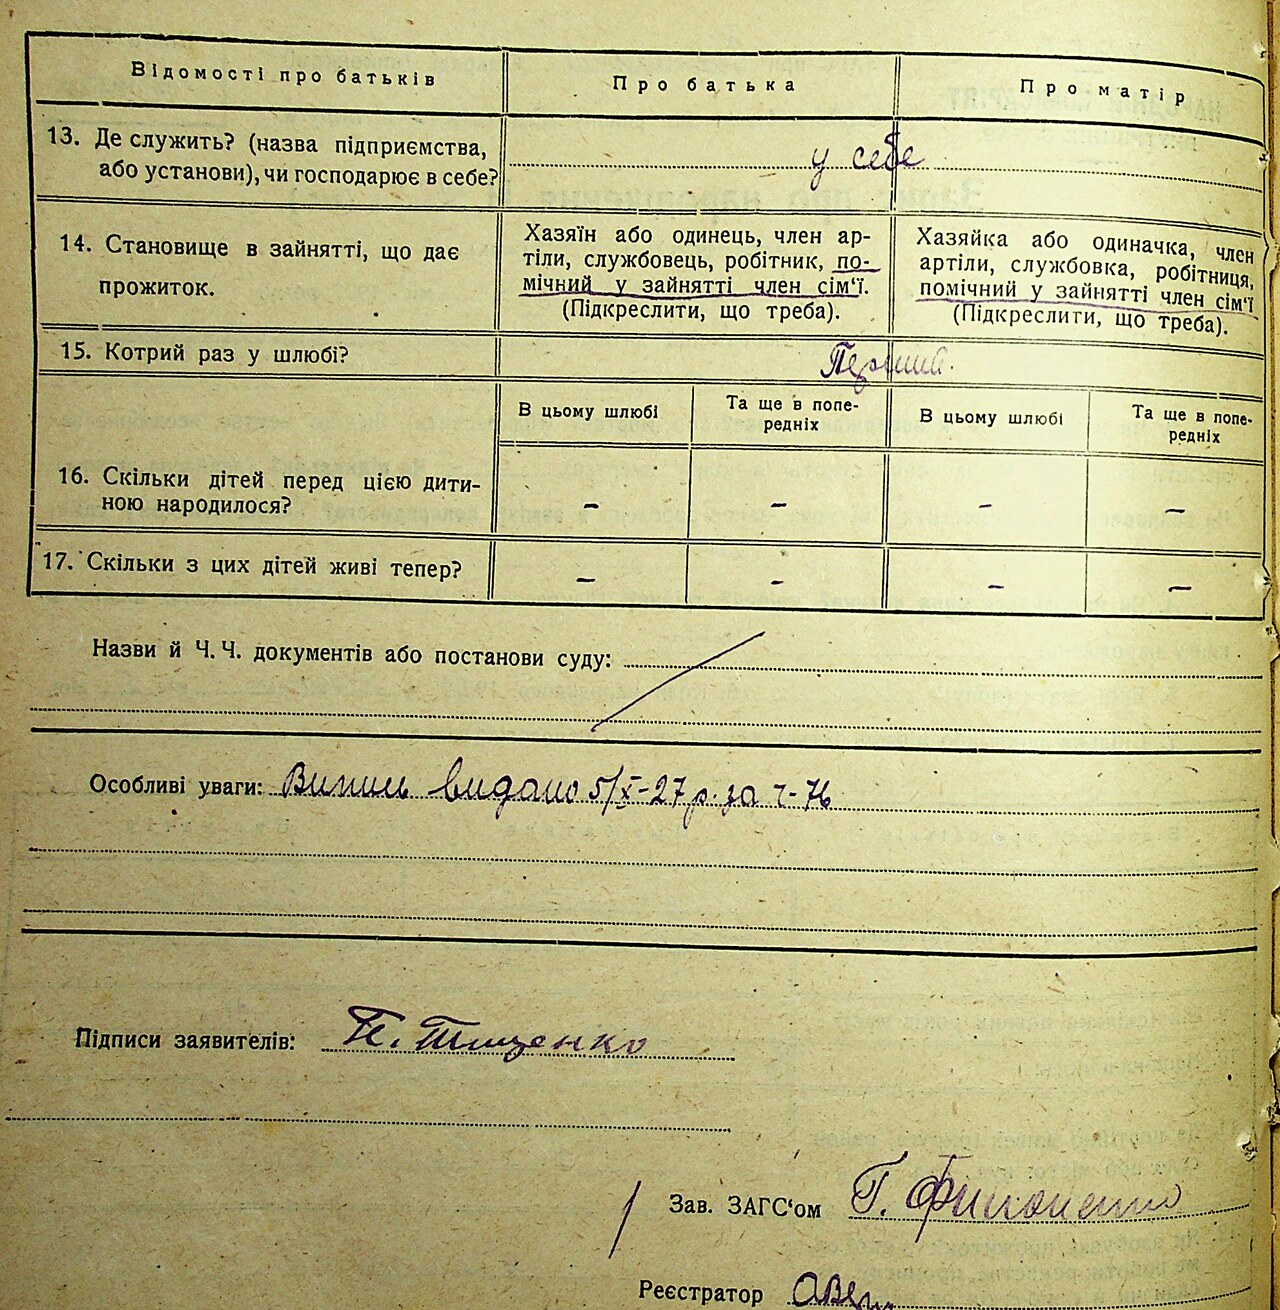 Відомості про батьків
Про батька
Про матір
13. Де служить? (назва підприємства,
або установи), чи господарює в себе?
у себе
14. Становище в зайнятті, що дає
прожиток.
Хазяїн або одинець, член ар-
тіли, службовець, робітник, по-
мічний у зайнятті член сім'ї.
(Підкреслити, що треба).
Хазяйка або одиначка, член
артіли, службовка, робітниця,
помічний у зайнятті член сім'ї
(Підкреслити, що треба).
15. Котрий раз у шлюбі?
Перший.
В цьому шлюбі
Та ще в попе-
редніх
В цьому шлюбі
Та ще в попе-
редніх
16. Скільки дітей перед цією дити-
ною народилося?
– – – –
17. Скільки з цих дітей живі тепер?
– – – –
Назви й Ч. Ч. документів або постанови суду:
Особливі уваги: Випись видано 5/X-27 р. за ч-76
Підписи заявителів: Тищенко
Зав. ЗАГС'ом Г. Филоненко
Реєстратор